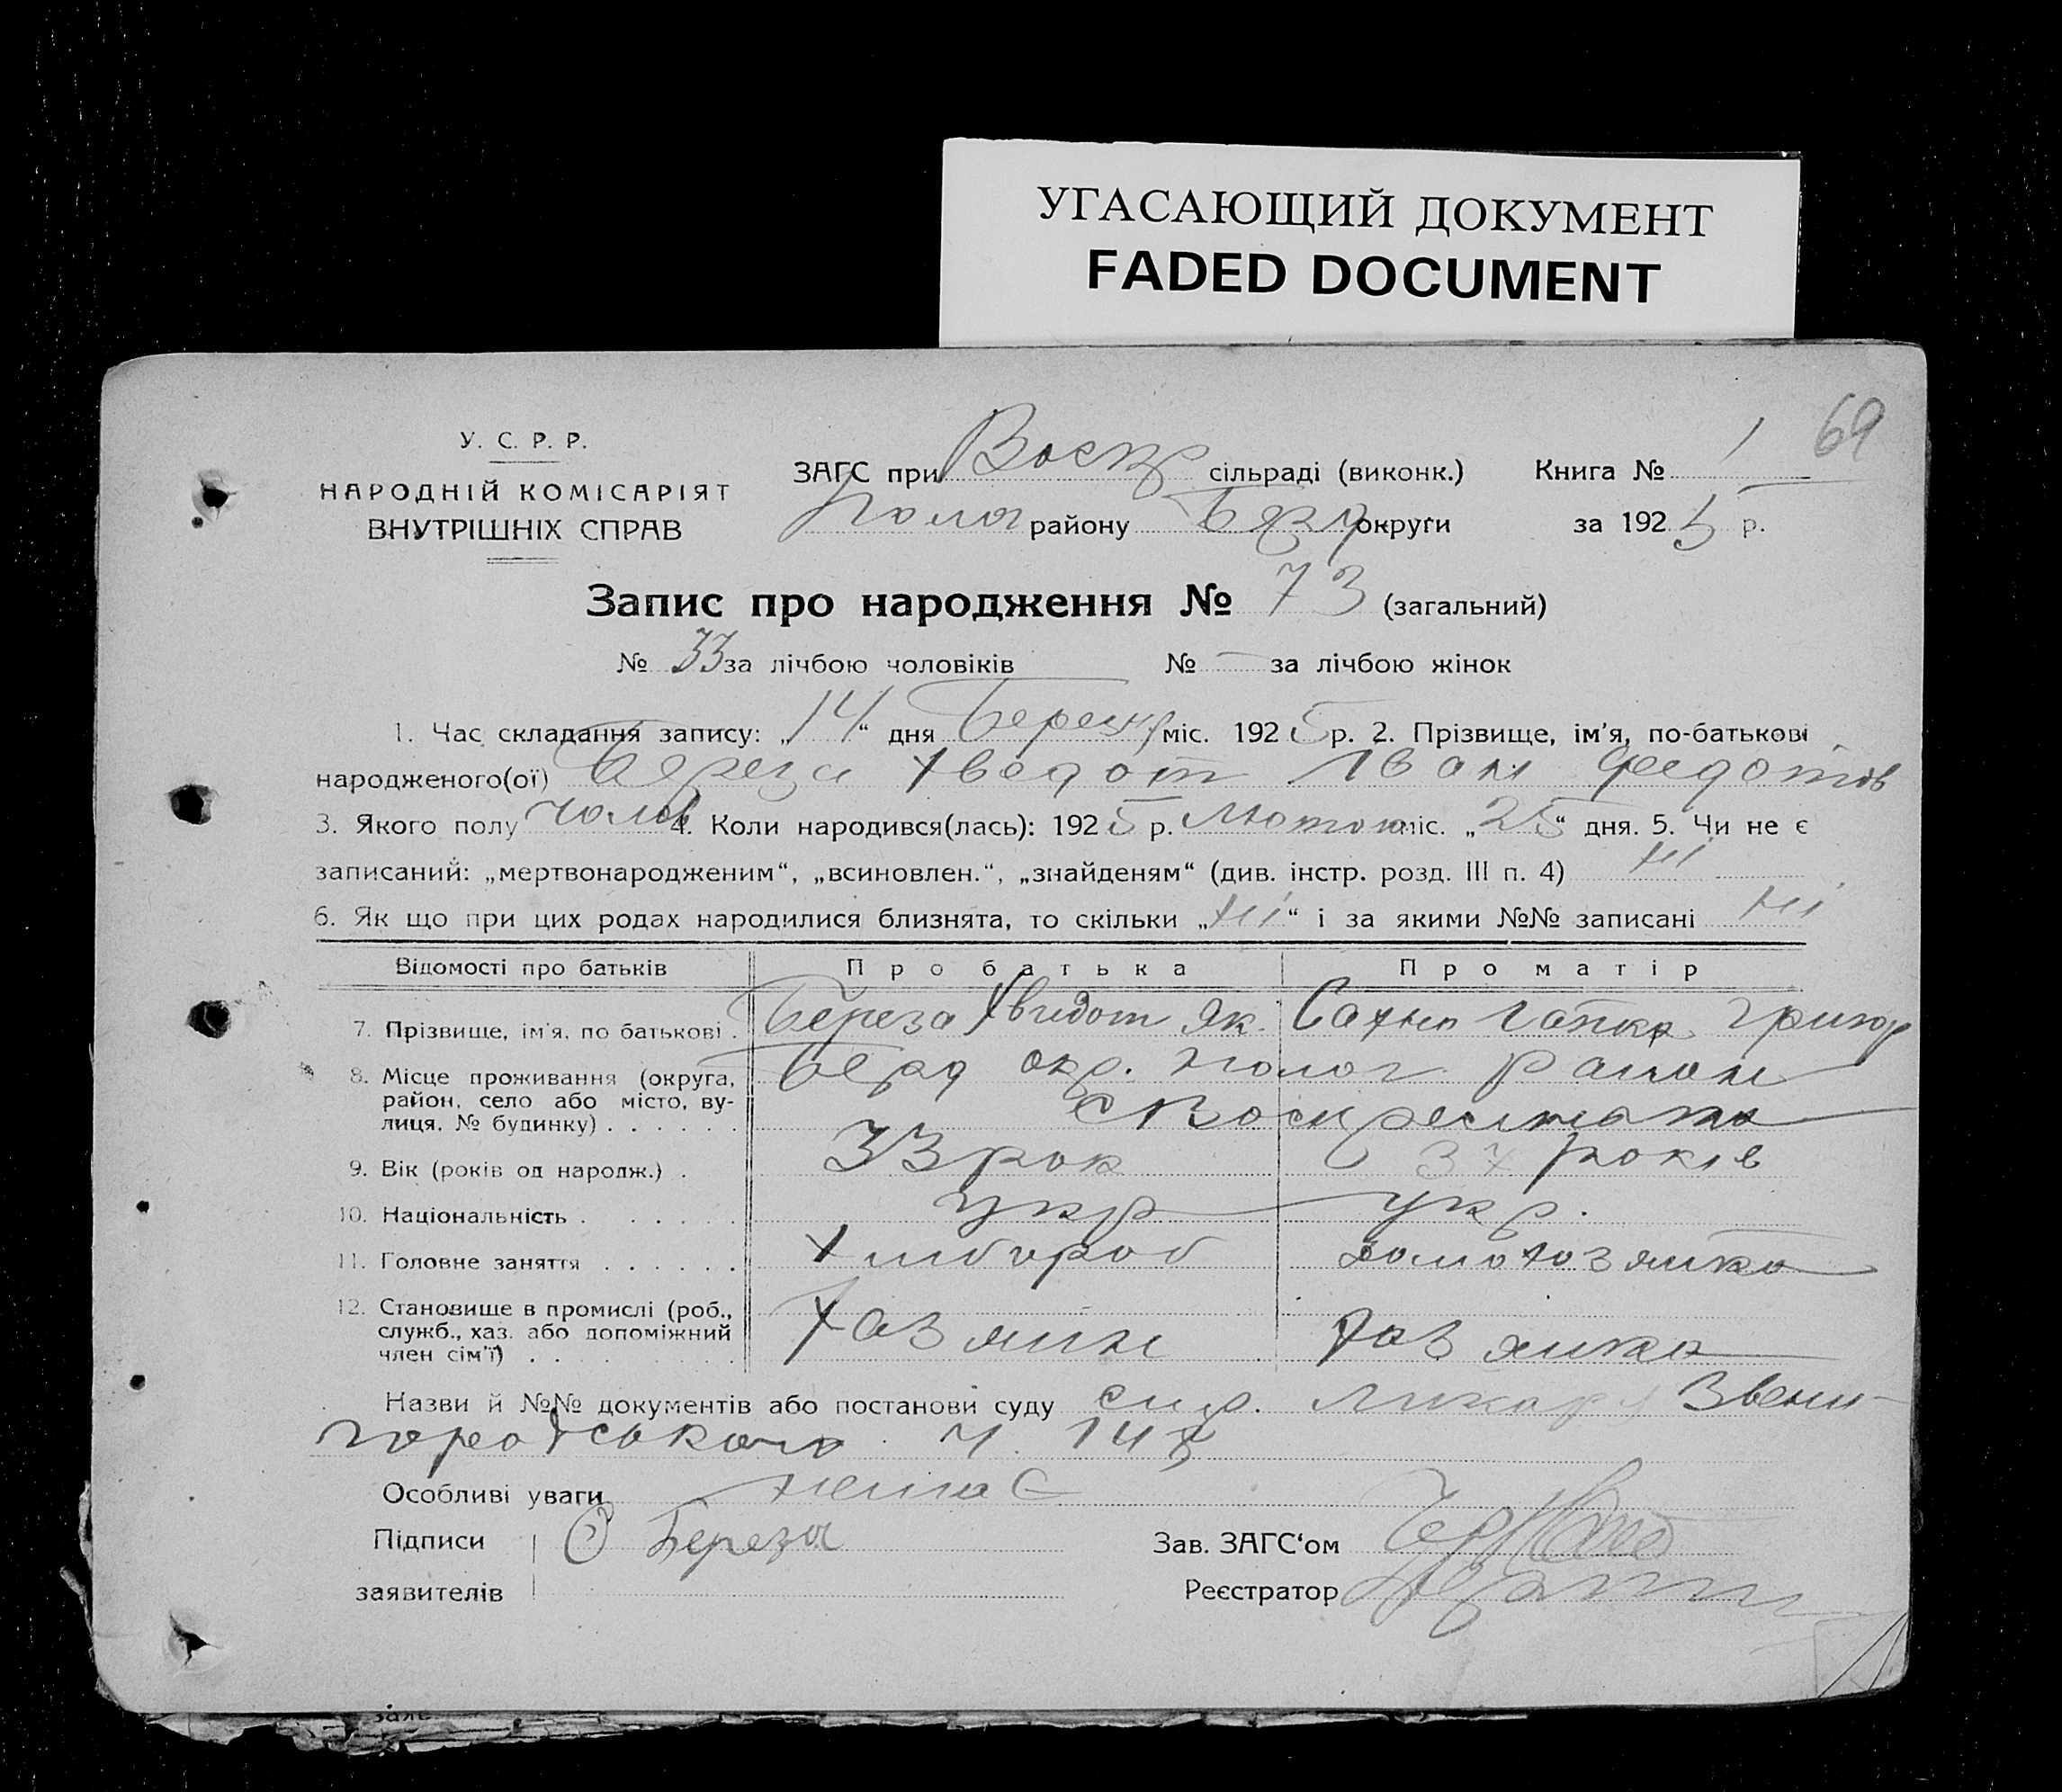 УГАСАЮЩИЙ ДОКУМЕНТ
FADED DOCUMENT
69
У. С. Р. Р.
НАРОДНІЙ КОМІСАРІЯТ
ВНУТРІШНІХ СПРАВ
ЗАГС при Воскр сільраді (виконк.) Книга № 1
Полог району округи за 1925 р.
Запис про народження № 73 (загальний)
№ 33 за лічбою чоловіків № — за лічбою жінок
1. Час складання запису: „14“ дня Березня міс. 1925 р. 2. Прізвище, ім'я, по-батькові
народженого(ої) Береза Хведот Іван Федотов
3. Якого полу чолов 4. Коли народився(лась): 1925 р. Лютого міс. „25“ дня. 5. Чи не є
записаний: „мертвонародженим“, „всиновлен.“, „знайденям“ (див. інстр. розд. III п. 4) ні
6. Як що при цих родах народилися близнята, то скільки „ні“ і за якими №№ записані ні
Відомості про батьків Про батька Про матір
7. Прізвище, ім'я, по батькові . Береза Хведот Як. Гапка Григор
8. Місце проживання (округа, район, село або місто, вулиця, № будинку) . . . . . . Берд окр. Полог район
с Воскресенка
9. Вік (років од народж.) . 33 рок 37 років
10. Національність . . . . . укр укр.
11. Головне заняття . . . . . . Хлібороб домохозяйка
12. Становище в промислі (роб., служб., хаз. або допоміжний член сім'ї) . . Хазяин хазяйка
Назви й №№ документів або постанови суду спр. Ликаря Звени-
городського ч. 145
Особливі уваги немає
Підписи Береза Зав. ЗАГС'ом
заявителів Реєстратор
заяв